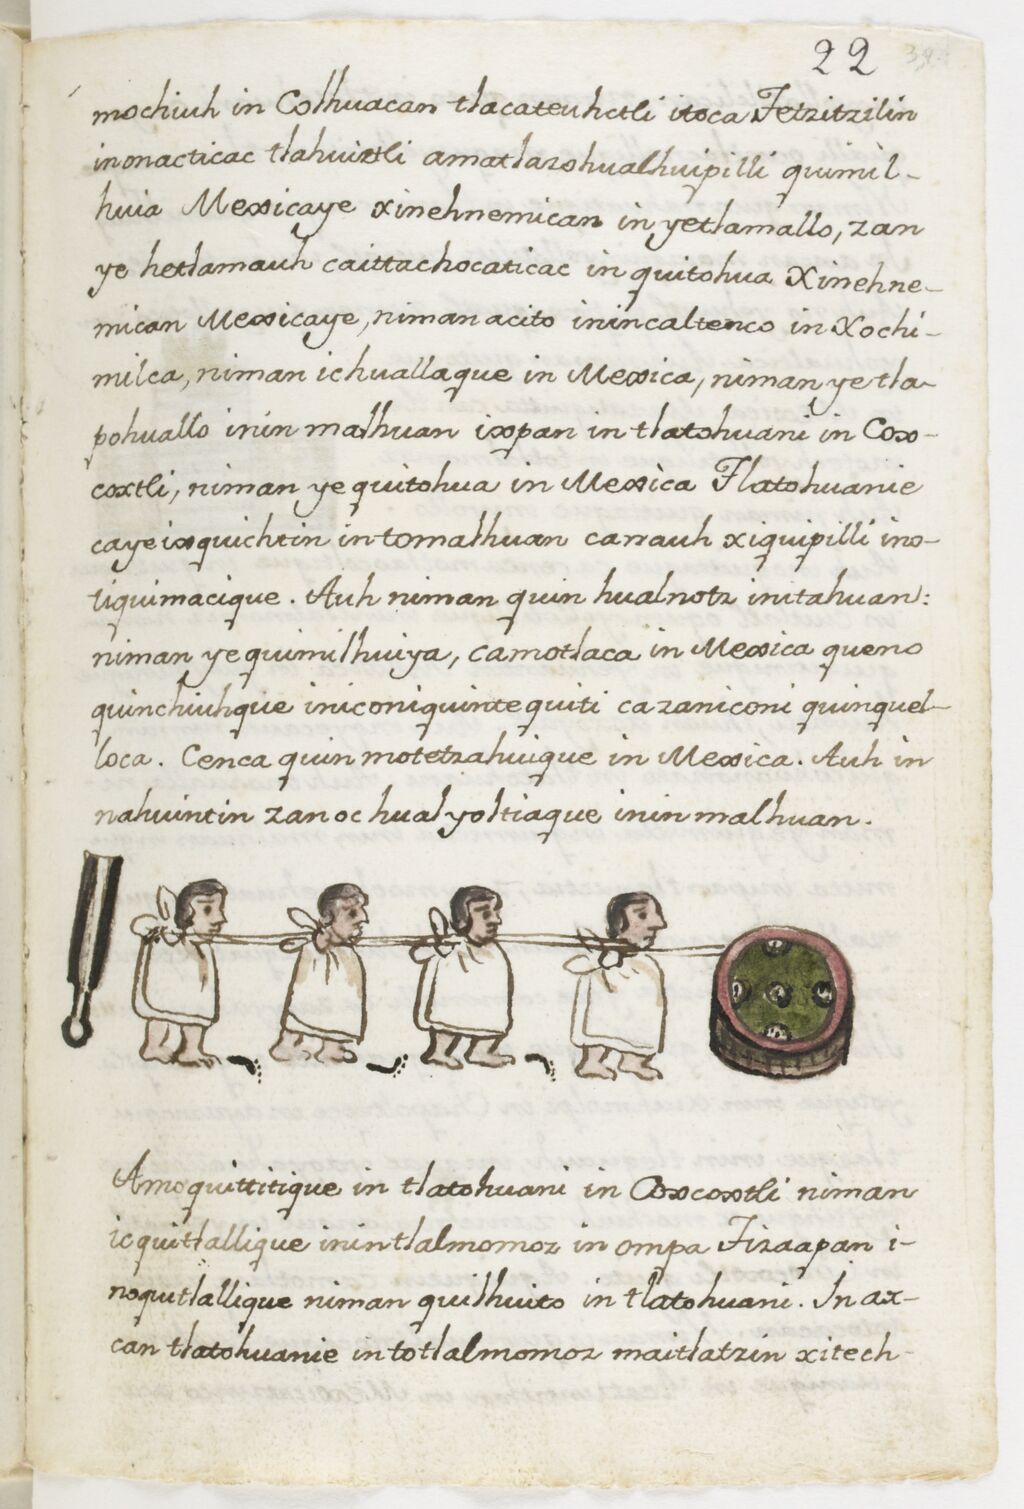 22 39
mochiuh in Colhuacan tlacateuhctli itoca Tetzitzilin
inonacticac tlahuiztli amatlazohualhuipilli quimil-
huia Mexicaye xinehnemican in yetlamallo, zan
ye hetlamauh caittachocaticac in quitohua Xinehne-
mican Mexicaye, niman acito inincaltenco in Xochi-
milca, niman ichuallaque in Mexica, niman ye tla-
pohuallo inin malhuan ixpan in tlatohuani in Cox-
coxtli, niman ye quitohua in Mexica Tlatohuanie
caye ixquichtin in tomalhuan canauh xiquipilli ino-
tiquimacique. Auh niman quin hualnotz initahuan:
niman ye quimilhuiya, camotlaca in Mexica queno
quinchiuhque iniconiquintequiti ca zaniconi quinquel-
loca. Cenca quin motetzahuique in Mexica. Auh in
nahuintin zan oc hual yoltiaque inin malhuan.
Amoquittitique in tlatohuani in Coxcoxtli niman
ic quitlallique inin tlalmomoz in ompa Tizaapan i-
noqutlallique niman quilhuito in tlatohuani. In ax-
can tlatohuanie in totlalmomoz maitlatzin xitech-